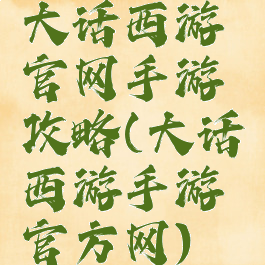 大话西游
官网手游
攻略(大话
西游手游
官方网)